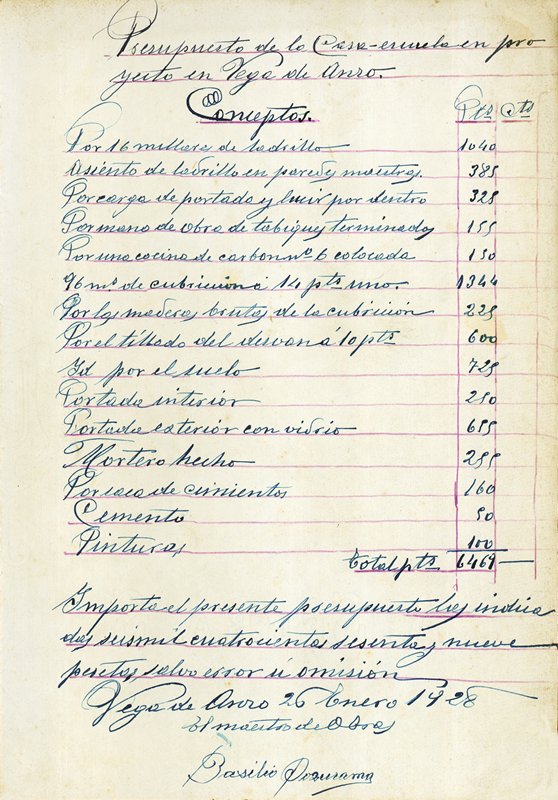 Presupuesto de la Casa-escuela en pro
yecto en Vega de Anzo.
Conceptos. Pts Cts
Por 16 millares de ladrillo 1040
Asiento de ladrillo en paredes maestras. 385
Por carga de portada y lucir por dentro 325
Por mano de obra de tabiques terminados 155
Por una cocina de carbon nº 6 colocada 150
96 m.² de cubricion á 14 pts uno. 1344
Por las maderas brutas de la cubrición 225
Por el tillado del desvan á 10 pts 600
Id por el suelo 725
Portada interior 250
Portada exterior con vidrio 655
Mortero hecho 255
Por saca de cimientos 160
Cemento 50
Pinturas 100
Total pts 6469 —
Importa el presente presupuesto las indica
das seismil cuatrocientas sesenta y nueve
pesetas, salvo error ú omisión
Vega de Anzo 26 Enero 1928
El maestro de Obras
Basilio